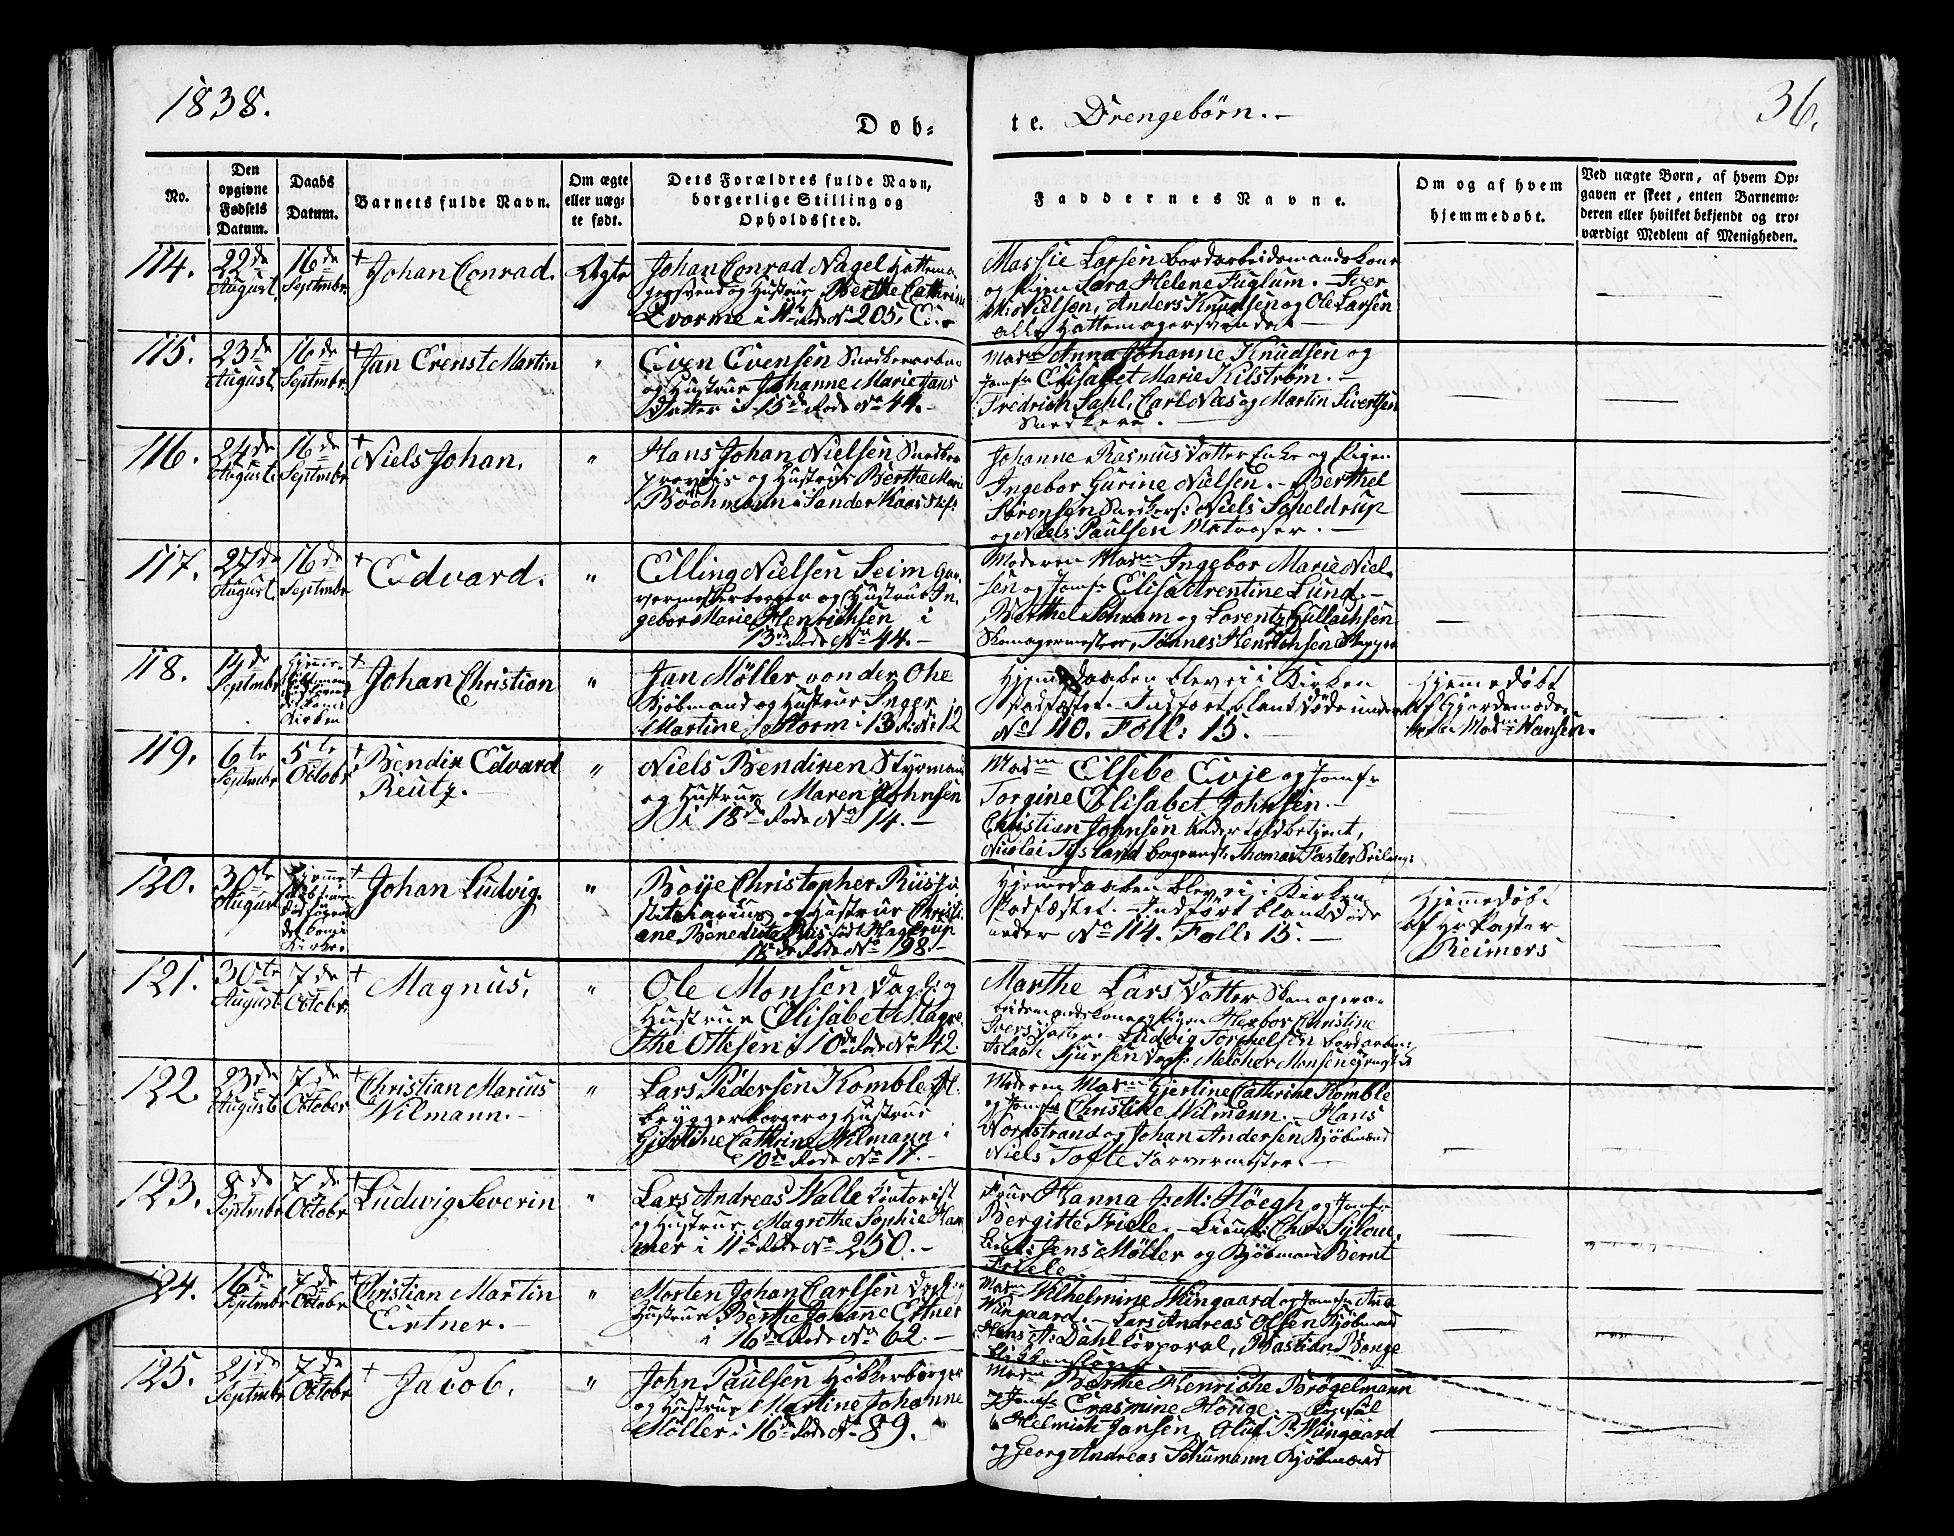 1838.
Döb-
te. Drengebörn.-
36.
No.
Den opgivne Födsels Datum.
Daabs Datum.
Barnets fulde Navn.
Om ægte eller uægte født.
Dets Forældres fulde Navn, borgerlige Stilling og Opholdssted.
Faddernes Navne.
Om og af hvem hjemmedøbt.
Ved uægte Børn, af hvem Opgaven er skeet, enten Barnemoderen eller hvilket bekjendt og troværdigt Medlem af Menigheden.
114. 22de August. 16de Septmbr. + Johan Conrad. Ægte
Johan Conrad Nagel Hattema-
gersvend og Hustrue Berthe Cathrine
i 11te Rode No 205.
Massie Larsen
og Pigen Sara Helene Fuglum. - Iver
Nielsen, Anders Knudsen og Ole Larsen
alle Hattemagersvende. -
115. 23de August. 16de Septmbr. + Jan Erenst Martin "
Even Evensen
og Hustrue Johanne Marie Jans
Datter i 15de Rode No 44. -
Madm Anna Johanne Knudsen og
Jomfr Elisabet Marie Kilström. -
Fredrich Sahl, Carl Næs og Martin Sivertsen
Snedkere. -
116. 24de August. 16de Septmbr. + Niels Johan. "
Hans Johan Nielsen
og Hustrue Berthe Marie
Bochmann i
Johanne Rasmus Datter Enke og Pigen
Ingebor Gurine Nielsen. - Berthel
Sørensen Niels Scheldrup
og Niels Paulsen Matroser. -
117. 27de August. 16de Septmbr. + Edvard. "
Elling Nielsen Seim Gar-
vermesterborger og Hustrue In-
gebor Marie Henrichsen i
13de Rode No 44. -
Moderen Madm Ingebor Marie Niel-
sen og Jomfr Elisa Arentine Lund. -
Berthel Schram og Lorentz Gullachsen
Skomagermestere, Tønnes Henrichsen
118. 14de Septmbr. + Johan Christian "
Jan Möller von der Ohe
Kjøbmand og Hustrue Inger
Martine Storm i 13 R: No 12
Hjemmedaaben blev ei i Kirken
stadfæstet. Indført blant Døde under
No 110. Foll: 15. -
Hjemmedøbt
af Gjordemode-
Madm Hansen.
119. 6te Septmbr 5te Octobr + Bendix Edvard
Reutz. - "
Niels Bendixen Styrmand
og Hustrue Maren Johnsen
i 18de Rode No 14. -
Madm Elsebe Evje og Jomfr
Torgine Elisabet Johnsen. -
Christian Johnsen Undertoldbetjent,
Nicolai Tysland Thomas Faster
120. 30te August. + Johan Ludvig. "
Boije Christopher Riis
og Hustrue Christi-
ane Benedicta Riis født Hagerup
Rode No 198. -
Hjemmedaaben blev ei i Kirken
stadfæstet. - Indført blant Døde
under No 114. Foll: 15. -
Hjemmedøbt
af Hr Pastor
Reimers
121. 30te August 7de Octobr + Magnus. "
Ole Monsen Dagl: og
Hustrue Elisabet Magre-
the Ottesen i 10de Rode No 142.
Marthe Lars Datter
Christine
Ivers Datter - Ludvig Torchelsen
Aslach Sjursen Dagl: Melchior Monsen
122. 23de August. 7de October + Christian Marius
Wilmann. - "
Lars Pedersen Komble
Bryggerborger og Hustrue
Gjertine Cathrine Wilmann i
10de Rode No 17. -
Moderen Madm Gjertine Cathrine Komble
og Jomfr Christine Wilmann. - Hans
Nordstrand og Johan Andersen Kjøbmænd
Niels Tofte Farvermester -
123. 8de Septmbr 7de Octobr + Ludvig Severin "
Lars Andreas Walle
og Hustrue Magrethe Sophie Ham-
mer i 11te Rode No 250. -
Frue Hanna J: M: Höegh og Jomfr
Bergitte Friele. - Lieut:
Lieut: Jens Möller og Kjøbmand Bernt
Friele
124. 16de Septmbr 7de Octobr + Christian Martin
Ertner. - "
Morten Johan Carlsen Dagl: og
Hustrue Berthe Johane Ertner
i 16de Rode No 62. -
Madm Wilhelmine Wungaard og Jomfr Ana
Wungaard. - Lars Andreas Olsen Kjøbmand
Hans A: Dahl Corporal, Bastian Bonge
125. 21de Septmbr 7de Octobr + Jacob. "
John Paulsen Høkkerborger
og Hustrue Martine Johanne
Möller i 16de Rode No 89.
Madm Berthe Henriche Brögelmann
Jomfr Erasmine Houge. -
Helmich Jansen, Oluf P: Wungaard
og Georg Andreas Schumann Kjøbmænd